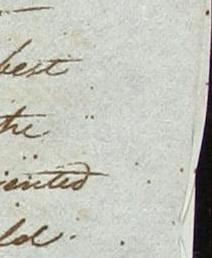 best
the
ented
ld.